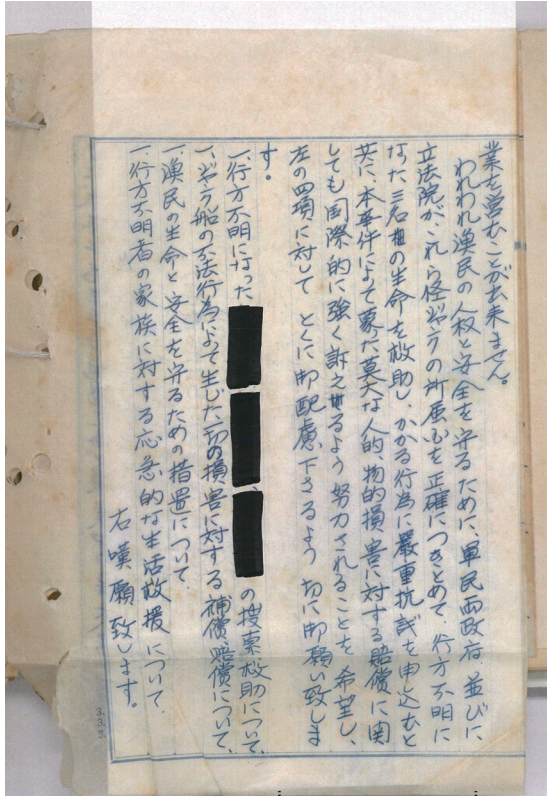 業を営むことが出来ません。
われわれ漁民の人权と安全を守るために、軍民両政府、並びに、
立法院が、これら怪ジャンクの所属を正確につきとめて、行方不明に
なった三名の生命を救助し、かかる行為に嚴重抗議を申し込むと
共に、本事件によって蒙った莫大な人的、物的損害に対する賠償に関
しても国際的に強く訴えるよう努力されることを希望し、
左の四項に対して とくに御配慮下さるよう 切に御願い致しま
す。
一、行方不明になった の捜索救助について、
一、ジャンク船の不法行為によって生じた一切の損害に対する補償、賠償について、
一、漁民の生命と安全を守るための措置について、
一、行方不明者の家族に対する応急的な生活救援について、
右嘆願致します。
332